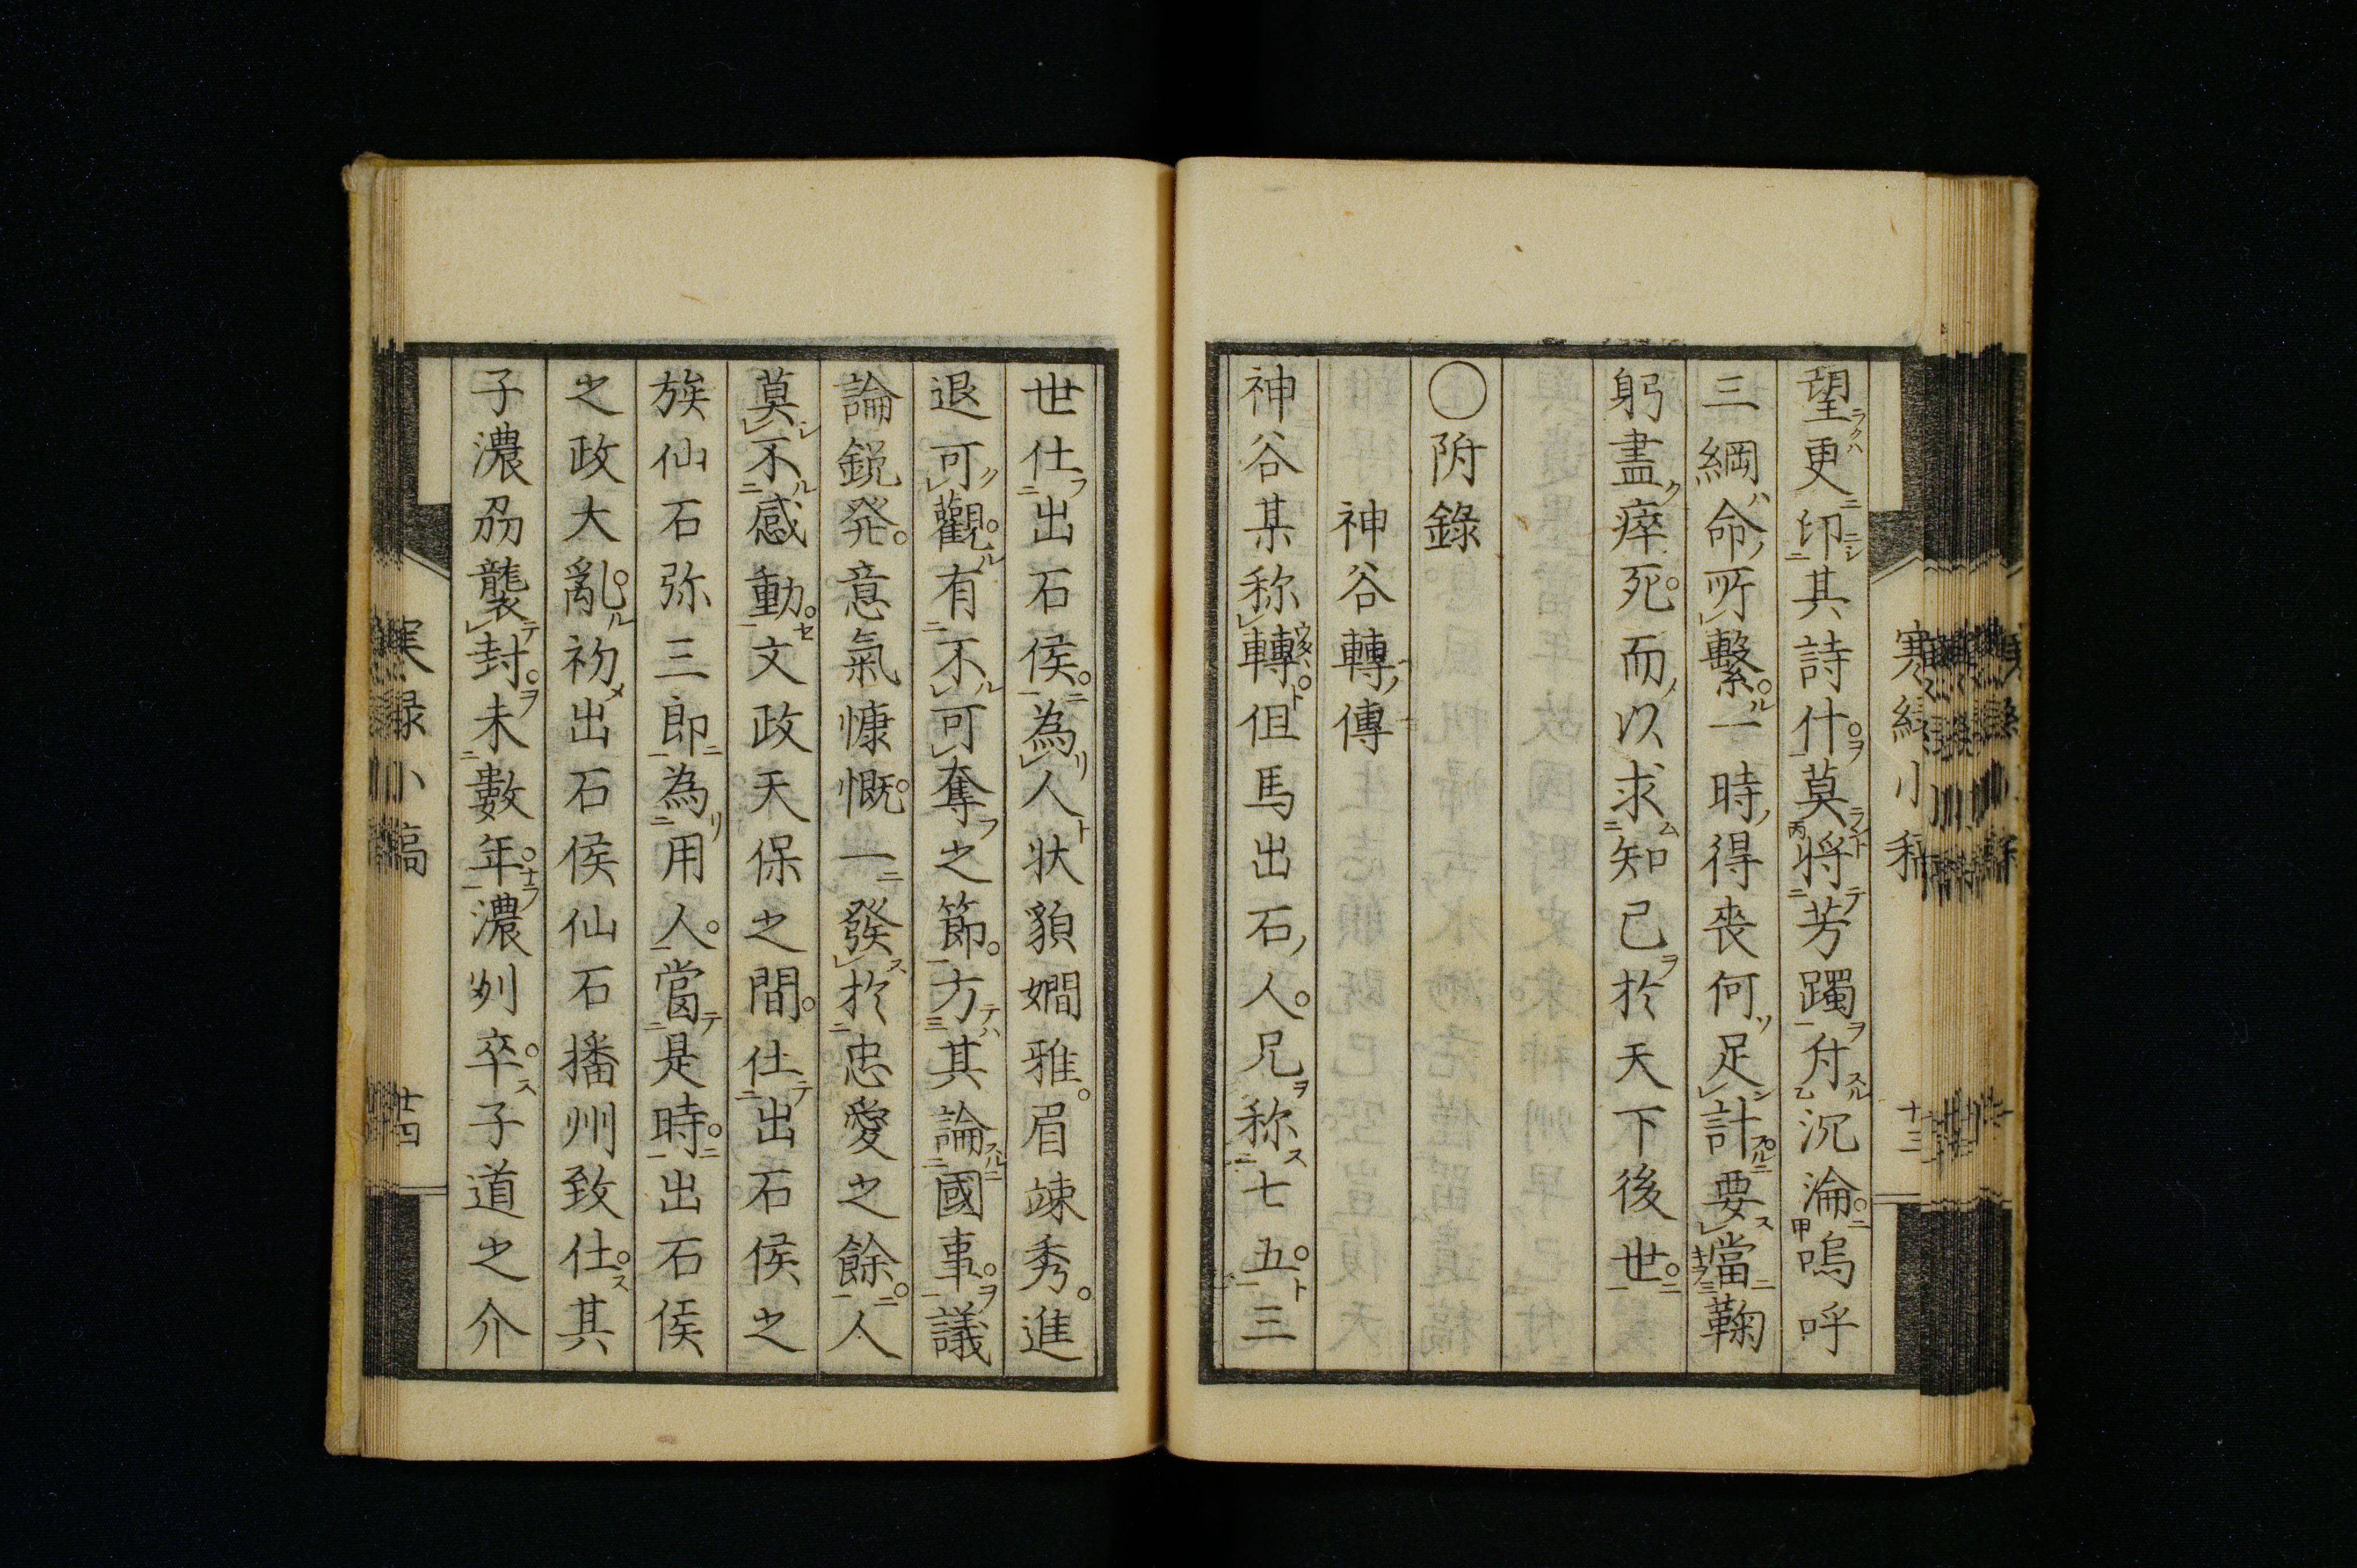 望更印其詩什莫将芳躅付沉淪嗚呼
三綱命所繫一時得喪何足計要當鞠
躬盡瘁死而以求知己於天下後世
〇附錄
神谷轉傳
神谷某称轉但馬出石人兄称七五三
世仕出石侯為人状貌嫺雅眉竦秀進
退可觀有不可奪之節方其論國事議
論鋭発意氣慷慨一發於忠愛之餘人
莫不感動文政天保之間仕出石侯之
族仙石弥三郎為用人當是時出石侯
之政大亂初出石侯仙石播州致仕其
子濃刕襲封未數年濃州卒子道之介
寒緑小稿
十四